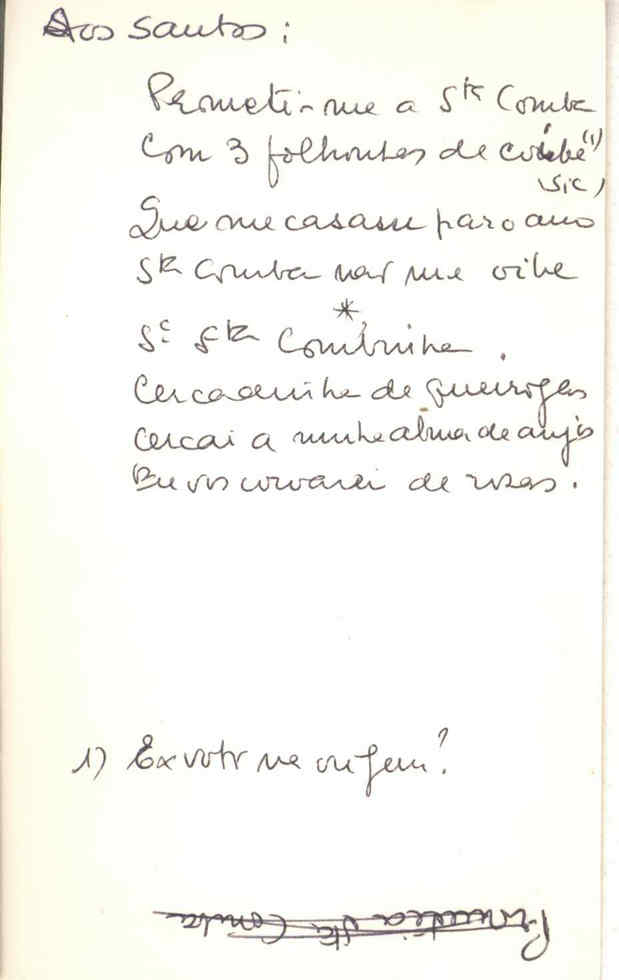 Aos Santos:
Prometi-me a Sta Comba
Com 3 folhinhas de
(1)
(sic)
Que me casasse par'o ano
Sta Comba não me
*
Sra Sta Combinha.
Cercadinha de queirogas
Cercai a minha alma de anjos
Eu vos coroarei de rosas.
1) Ex voto na origem?
Sta Comba